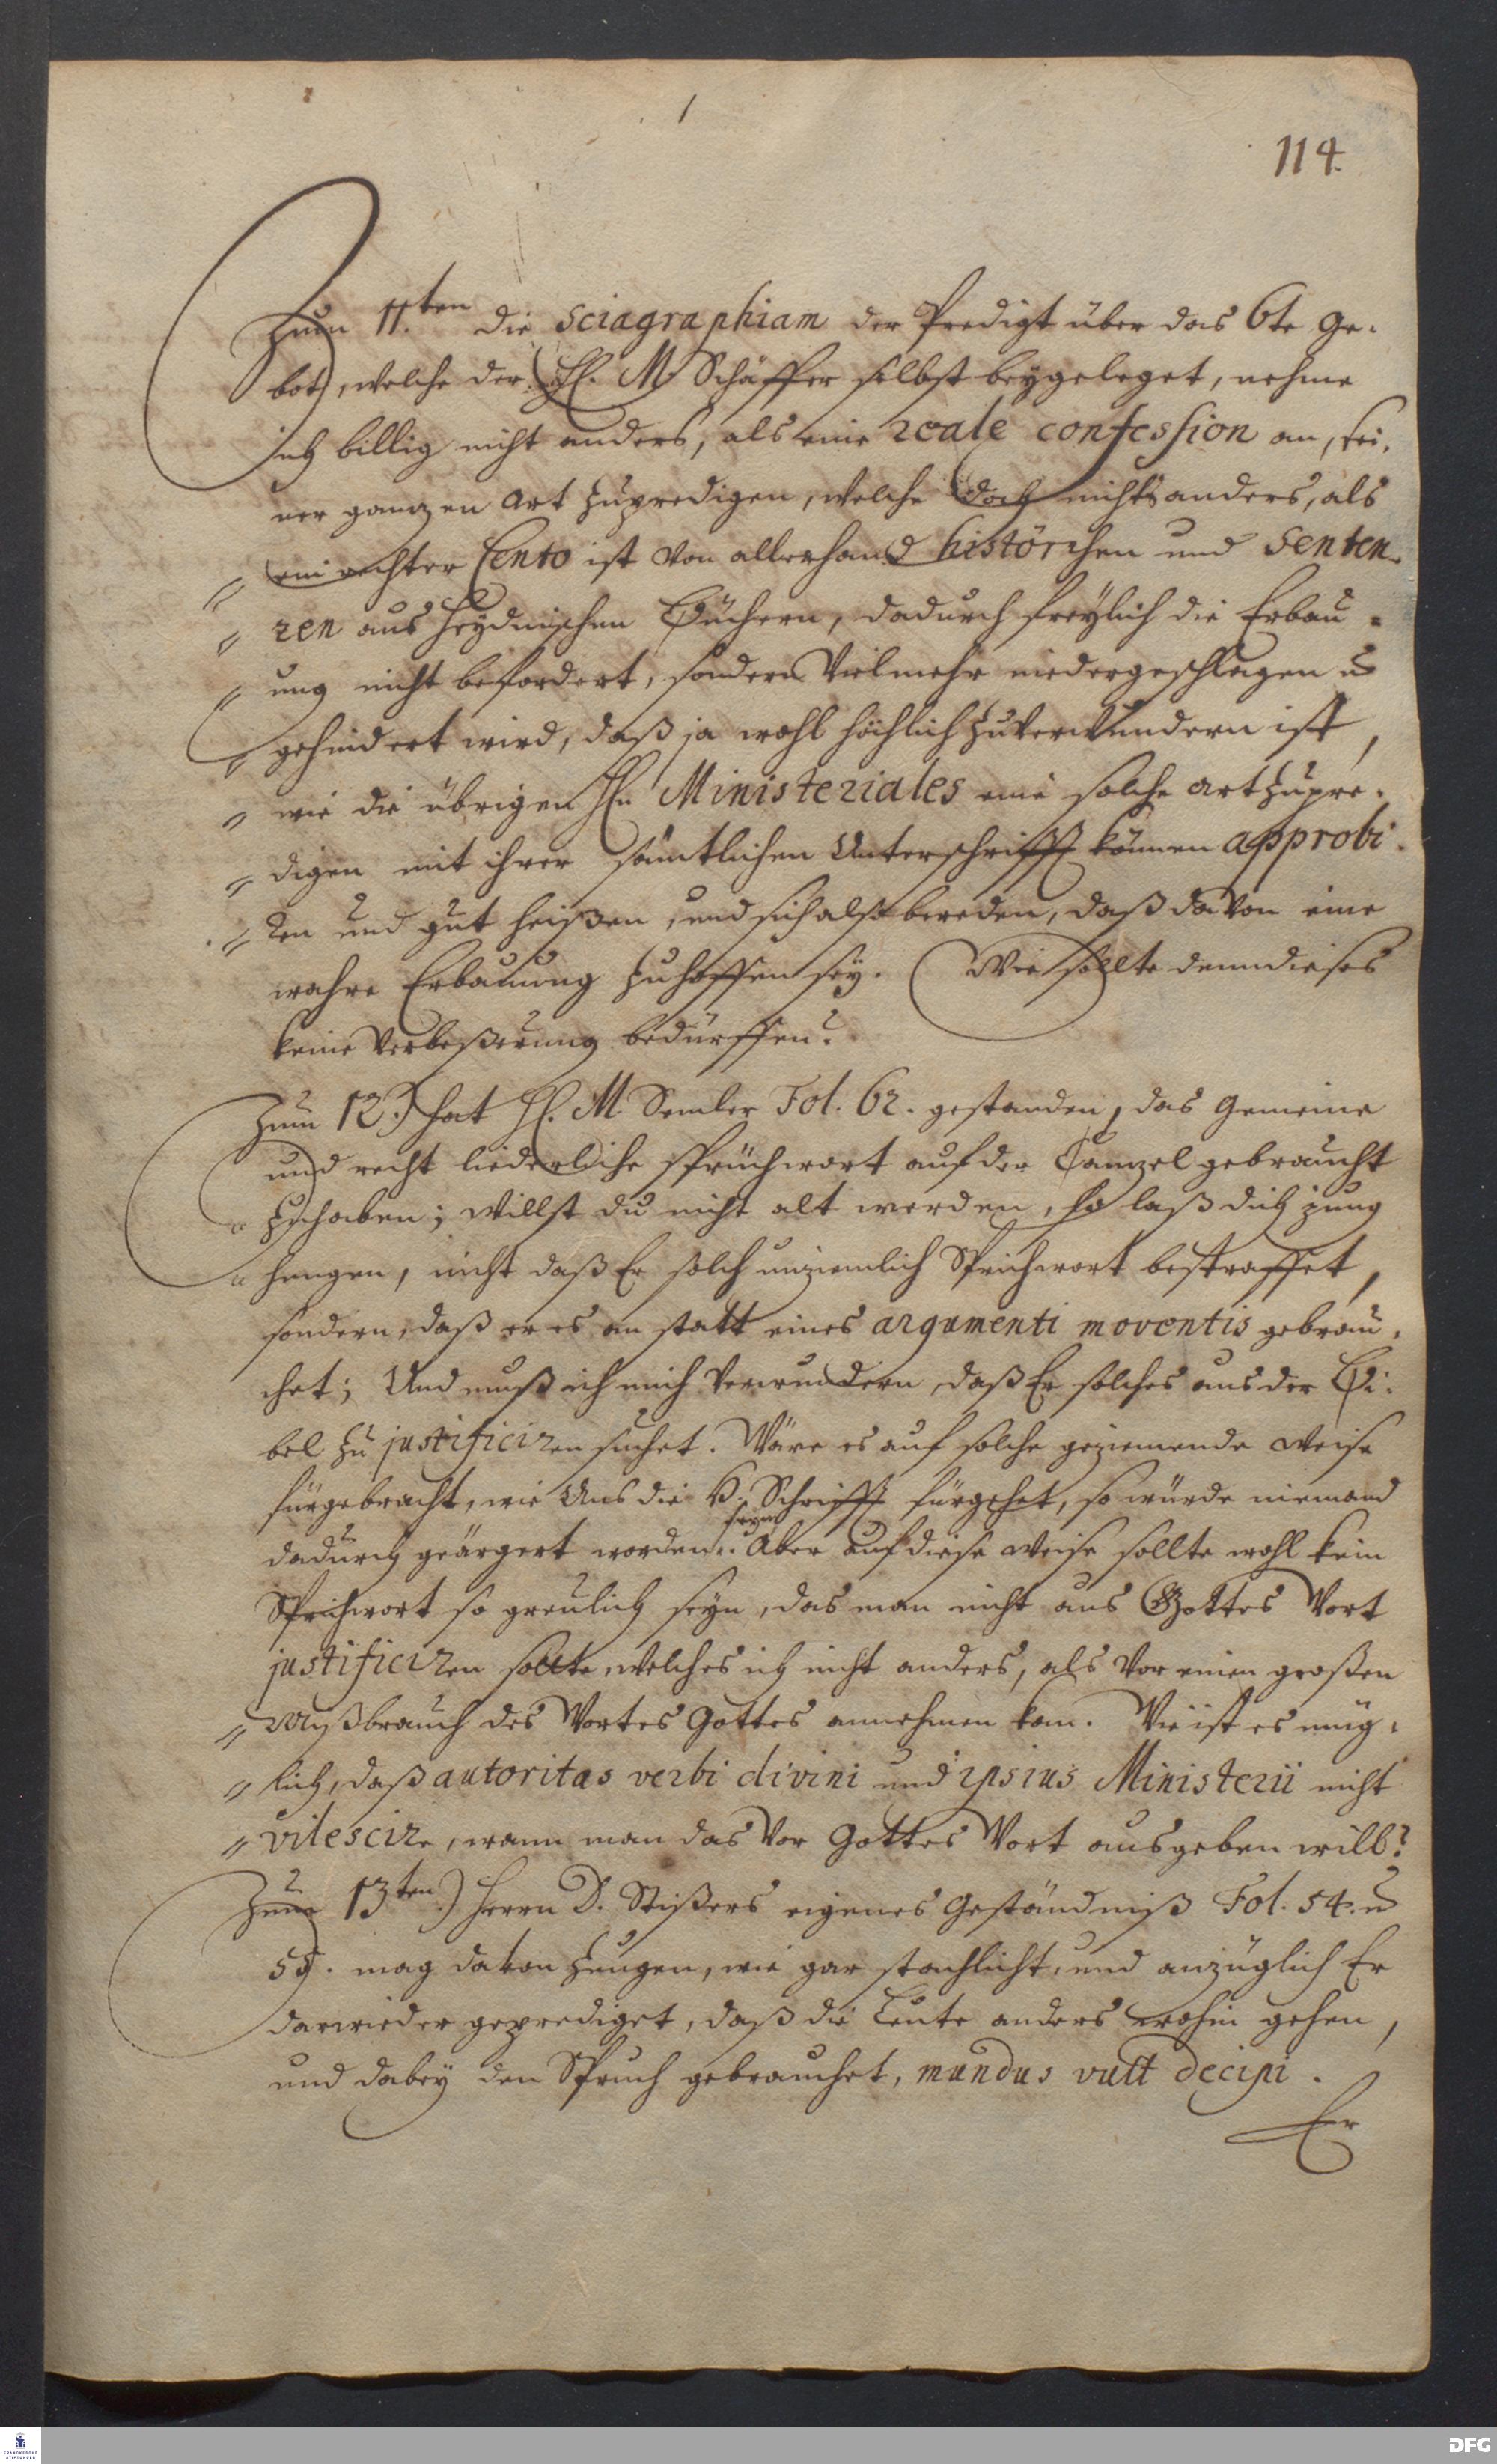 114.
Zum 11.ten die sciagraphiam der Predigt über das 6te Ge-
bot, welche der H. M Schäffer selbst beygeleget, nehme
ich billig nicht anders, als eine reale confession an, sei-
ner ganzen Art zupredigen, welche doch nichts anders, als
ein rechter Cento ist von allerhand histörchen und Senten-
zen aus Heydnischen Büchern, dadurch freylich die Erbau-
ung nicht befordert, sondern Vielmehr niedergeschlagen u
gehindert wird, daß ja wohl höchlich zuverwundern ist,
wie die übrigen Hn Ministeriales eine solche art zupre-
digen mit ihrer sämtlichen Unterschrifft können approbi-
ren und gut heißen, und sich also bereden, daß davon eine
wahre Erbauung zuhoffen sey. Wie sollte denn dieses
keine Verbeßerung bedürffen?
Zum 12.) hat H. M Semler Fol. 62. gestanden, das Gemeine
und recht liederliche sprüchwort auf der Canzel gebraucht
zuhaben; Willst du nicht alt werden, so laß dich jung
hengen, nicht daß Er solch unziemlich Sprichwort bestraffet,
sondern, daß er es an statt eines argumenti moventis gebrau-
chet; Und muß ich mich Verwundern, daß Er solches aus der Bi-
bel zu justificiren suchet. Wäre es auf solche geziemende Weise
fürgebracht, wie Uns die H. Schrifft fürgehet, so würde niemand
dadurch geärgert worden seyn. Aber auf diese Weise sollte wohl kein
Sprichwort so greulich seyn, das man nicht aus Gottes Wort
justificiren sollte, welches ich nicht anders, als Vor einen großen
Mißbrauch des Wortes Gottes annehmen kan. Wie ist es müg-
lich, daß autoritas verbi divini und ipsius Ministerii nicht
vilescire, wann man das Vor Gottes Wort ausgeben will?
Zum 13ten.) Herrn D. Stißers eigenes Geständniß Fol. 54. u
55. mag davon zeugen, wie gar stachlicht, und anzüglich Er
darwieder geprediget, daß die Leute anders wohin gehen,
und dabey den Spruch gebrauchet, mundus vult decipi.
Er
FRANCKESCHE
STIFTUNGEN
DFG